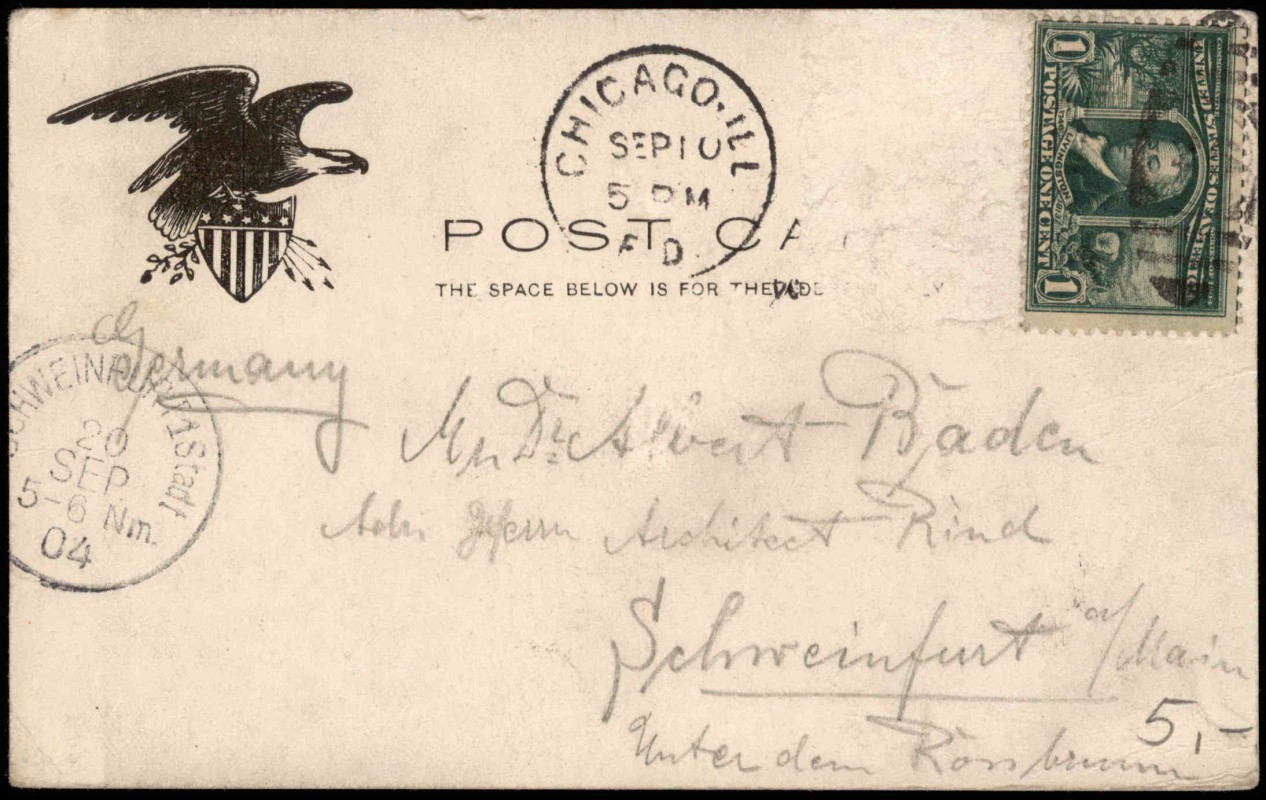 CHICAGO. ILL
SEP 10
5 PM
F D
POST CA
THE SPACE BELOW IS FOR THE ADD
1
POSTAGE ONE CENT
1
LIVINGSTON
UNITED STATES OF AMERICA
SCHWEINFURT 1 Stadt
20
SEP
5-6 Nm.
04
Germany
Dr. Albert Baden
Adr. Herrn Architect Rind
Schweinfurt a/Main
Unter dem Rossbrunnen
5,-